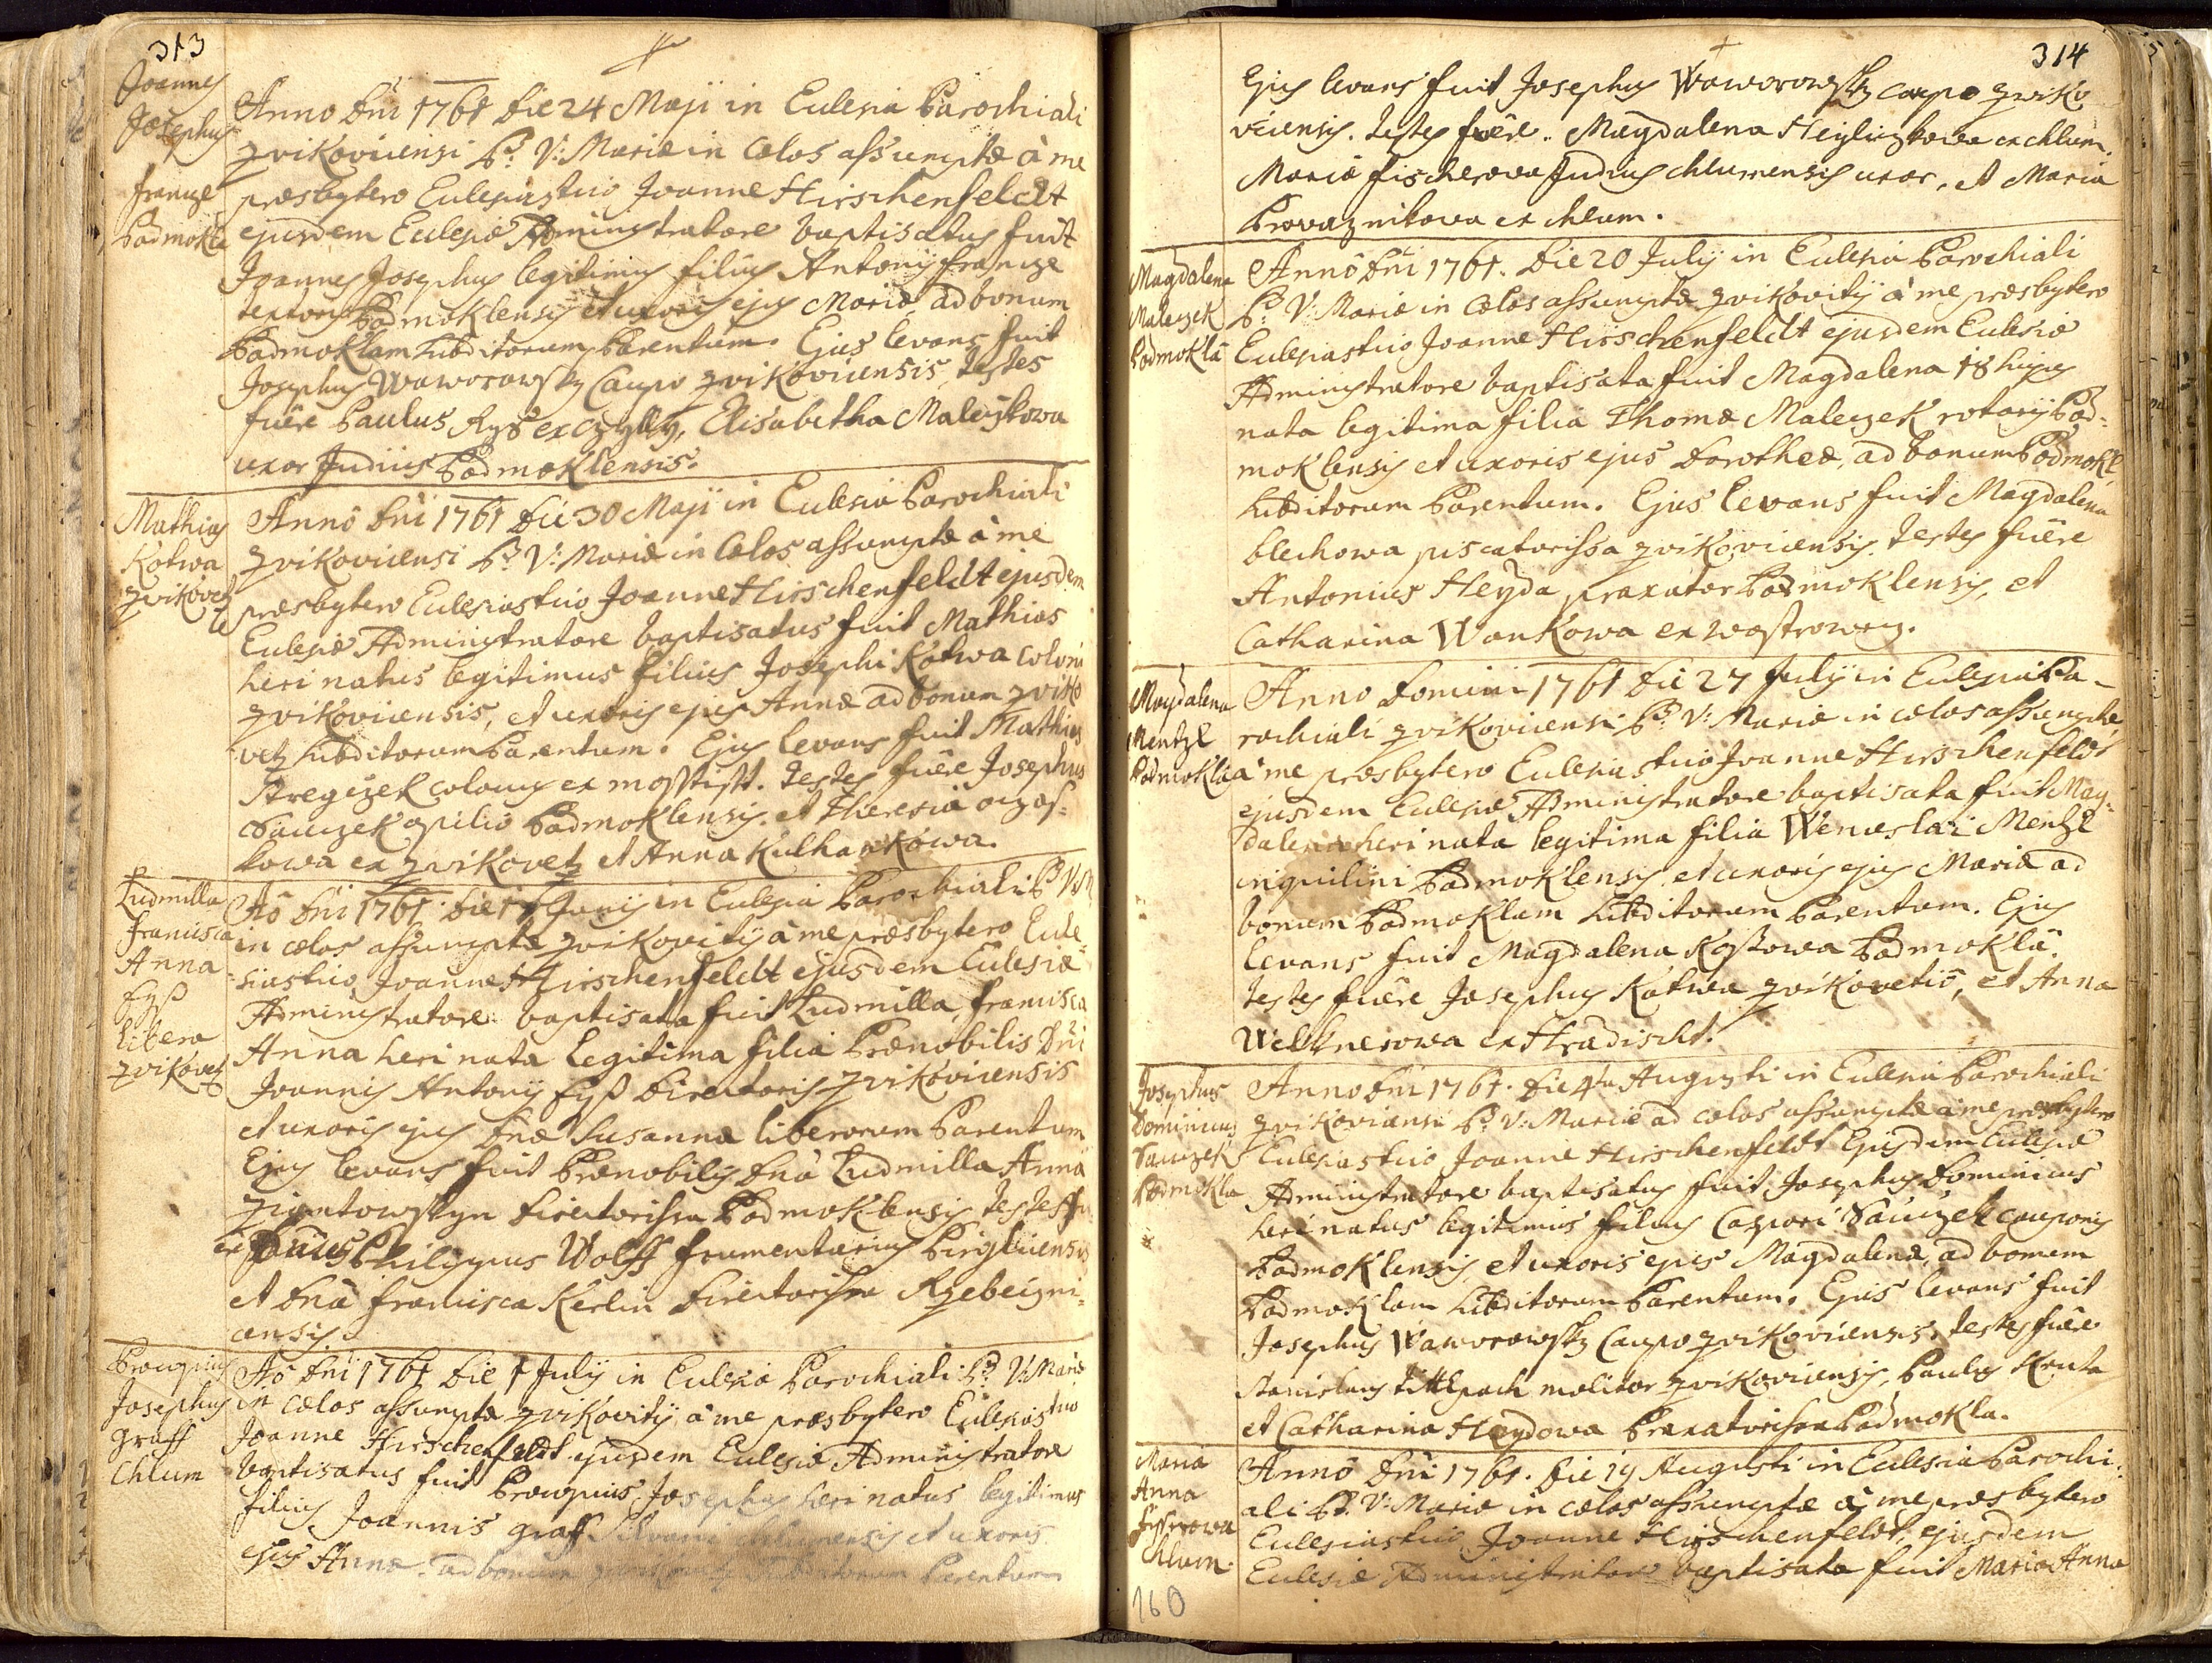 313
Joannes
Josephus
francze
Podmokla
Anno Dni 1761 Die 24 Maji in Eclesia Parochiali
zvikovicensi B: V: Mariæ in Cœlos assumptæ à me
præsbytero Eclesiastico Joanne Hirschenfeldt
ejusdem Eclesiæ Administratore baptisatus fuit
Joannes Josephus legitimus filius Antonij francze
textoris Podmoklensis et uxoris ejus Mariæ, ad bonum
Podmoklam Subditorum Parentum. Ejus levans fuit
Josephus Waworowsky Caupo zvikovicensis, testes
fuêre Paulus Rys ex Elisabetha Maleczkowa
uxor Judicis Podmoklensis.
Mathias
Kotwa
zvikovetz
Annô Dni 1761 Die 30 Maji in Eclesia Parochiali
zvikovicensi B: V: Mariæ in Cœlos assumptæ à me
præsbytero Eclesiastico Joanne Hirschenfeldt ejusdem
Eclesiæ Administratore baptisatus fuit Mathias
heri natus legitimus filius Josephi Kotwa Coloni
zvikovicensis, et uxoris ejus Annæ ad bonum zviko
vetz Subditorum Parentum. Ejus levans fuit Mathias
colonus ex testes fuêre Josephus
Sauczek opilio Podmoklensis, et Theresia
kowa ex zvikovetz et Anna Kulhankowa.
Ludmilla
francisca
Anna
fyß
libera
zvikovetz
Aô Dni 1761 Die Junij in Eclesia Parochiali B: V: M
in cœlos assumptæ zvikovitij à me præsbytero Ecle-
siastico Joanne Hirschenfeldt ejusdem Eclesiæ
Administratore baptisata fuit Ludmilla, francisca
Anna heri nata legitima filia Prænobilis Dni
Joannis Antonij fyß Directoris zvikovicensis
et uxoris ejus Dnæ Susannæ liberorum Parentum
Ejus levans fuit Prænobilis Dna Ludmilla Anna
Directorissa Podmoklensis, testes fu
Philippus Wolff frumentarius
et Dna francisca Kerlin Directorissa Rzebeczni-
censis.
Procopius
Josephus
graff
Chlum
Aô Dni 1761 Die 1 Julij in Eclesia Parochiali B: V: Mariæ
in Cœlos assumptæ zvikovitij à me præsbytero Eclesiastico
Joanne Hirschenfeldt ejusdem Eclesiæ Administratore
baptisatus fuit Procopius Josephus heri natus legitimus
filius Joannis graff et uxoris
ejus Annæ ad bonum Subditorum Parentum
314
Ejus levans fuit Josephus Waworowsky caupo zviko
vicensis. testes fuêre. Magdalena ex chlum.
Maria fischerova Judicis chlumensis uxor, et Maria
Provaznikowa ex chlum.
Magdalena
Maleczek
Podmokla
Annô Dni 1761. Die 20 Julij in Eclesia Parochiali
B: V: Mariæ in Cœlos assumptæ zvikovitij à me præsbytero
Eclesiastico Joanne Hirschenfeldt ejusdem Eclesiæ
Administratore baptisata fuit Magdalena 18 hujus
nata legitima filia Thomæ Maleczek rotarij Pod-
moklensis et uxoris ejus Dorotheæ, ad bonum Podmokl:
Subditorum Parentum. Ejus levans fuit Magdalena
blechowa piscatorissa zvikovicensis. testes fuêre
Antonius Heyda praxator Podmoklensis, et
Catharina Wankowa ex
Magdalena
Mentzl
Podmokla
Anno Domini 1761 Die 27 Julij in Eclesia Pa-
rochiali zvikovicensi B: V: Mariæ in cœlos assumptæ,
à me præsbytero Eclesiastico Joanne Hirschenfeldt
ejusdem Eclesiæ Administratore baptisata fuit Mag-
dalena heri nata legitima filia Wenceslai Mentzl
inquilini Podmoklensis, et uxoris ejus Mariæ ad
bonum Podmoklam Subditorum Parentum. Ejus
levans fuit Magdalena Podmokla.
testes fuêre Josephus Kotwa et Anna
Welknerowa ex Hradischt.
Josephus
Dominicus
Sauczek
Podmokla
Anno Dni 1761. Die 4ta Augusti in Eclesia Parochiali
zvikovicensi B: V: Mariæ ad cœlos assumptæ à me præsbytero
Eclesiastico Joanne Hirschenfeldt Ejusdem Eclesiæ
Administratore baptisatus fuit Josephus Dominicus
heri natus legitimus filius Caspari Sauczek cauponis
Podmoklensis, et uxoris ejus Magdalenæ, ad bonum
Podmoklam Subditorum Parentum. Ejus levans fuit
Josephus Waworowsky Caupo zvikovicensis, testes fuêre
Stanislaus molitor zvikovicensis, Paulus Kruta
et Catharina Heydowa Praxatorissa Podmokla.
Maria
Anna
Chlum.
Annô Dni 1761. Die 19 Augusti in Eclesia Parochi-
ali B: V: Mariæ in cœlos assumptæ à me præsbytero
Eclesiastico Joanne Hirschenfeldt, ejusdem
Eclesiæ Administratore baptisata fuit Maria Anna
160